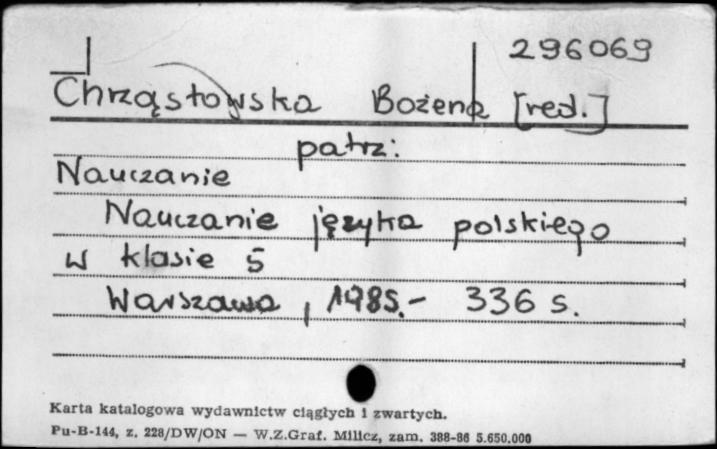 296069
Chrząstowska Bożena [red.]
patrz:
Nauczanie
Nauczanie języka polskiego
w klasie 5
Warszawa, 1985.- 336 s.
Karta katalogowa wydawnictw ciągłych i zwartych.
Pu-B-144, z. 228/DW/ON — W.Z.Graf. Milicz, zam. 388-86 5.650.000